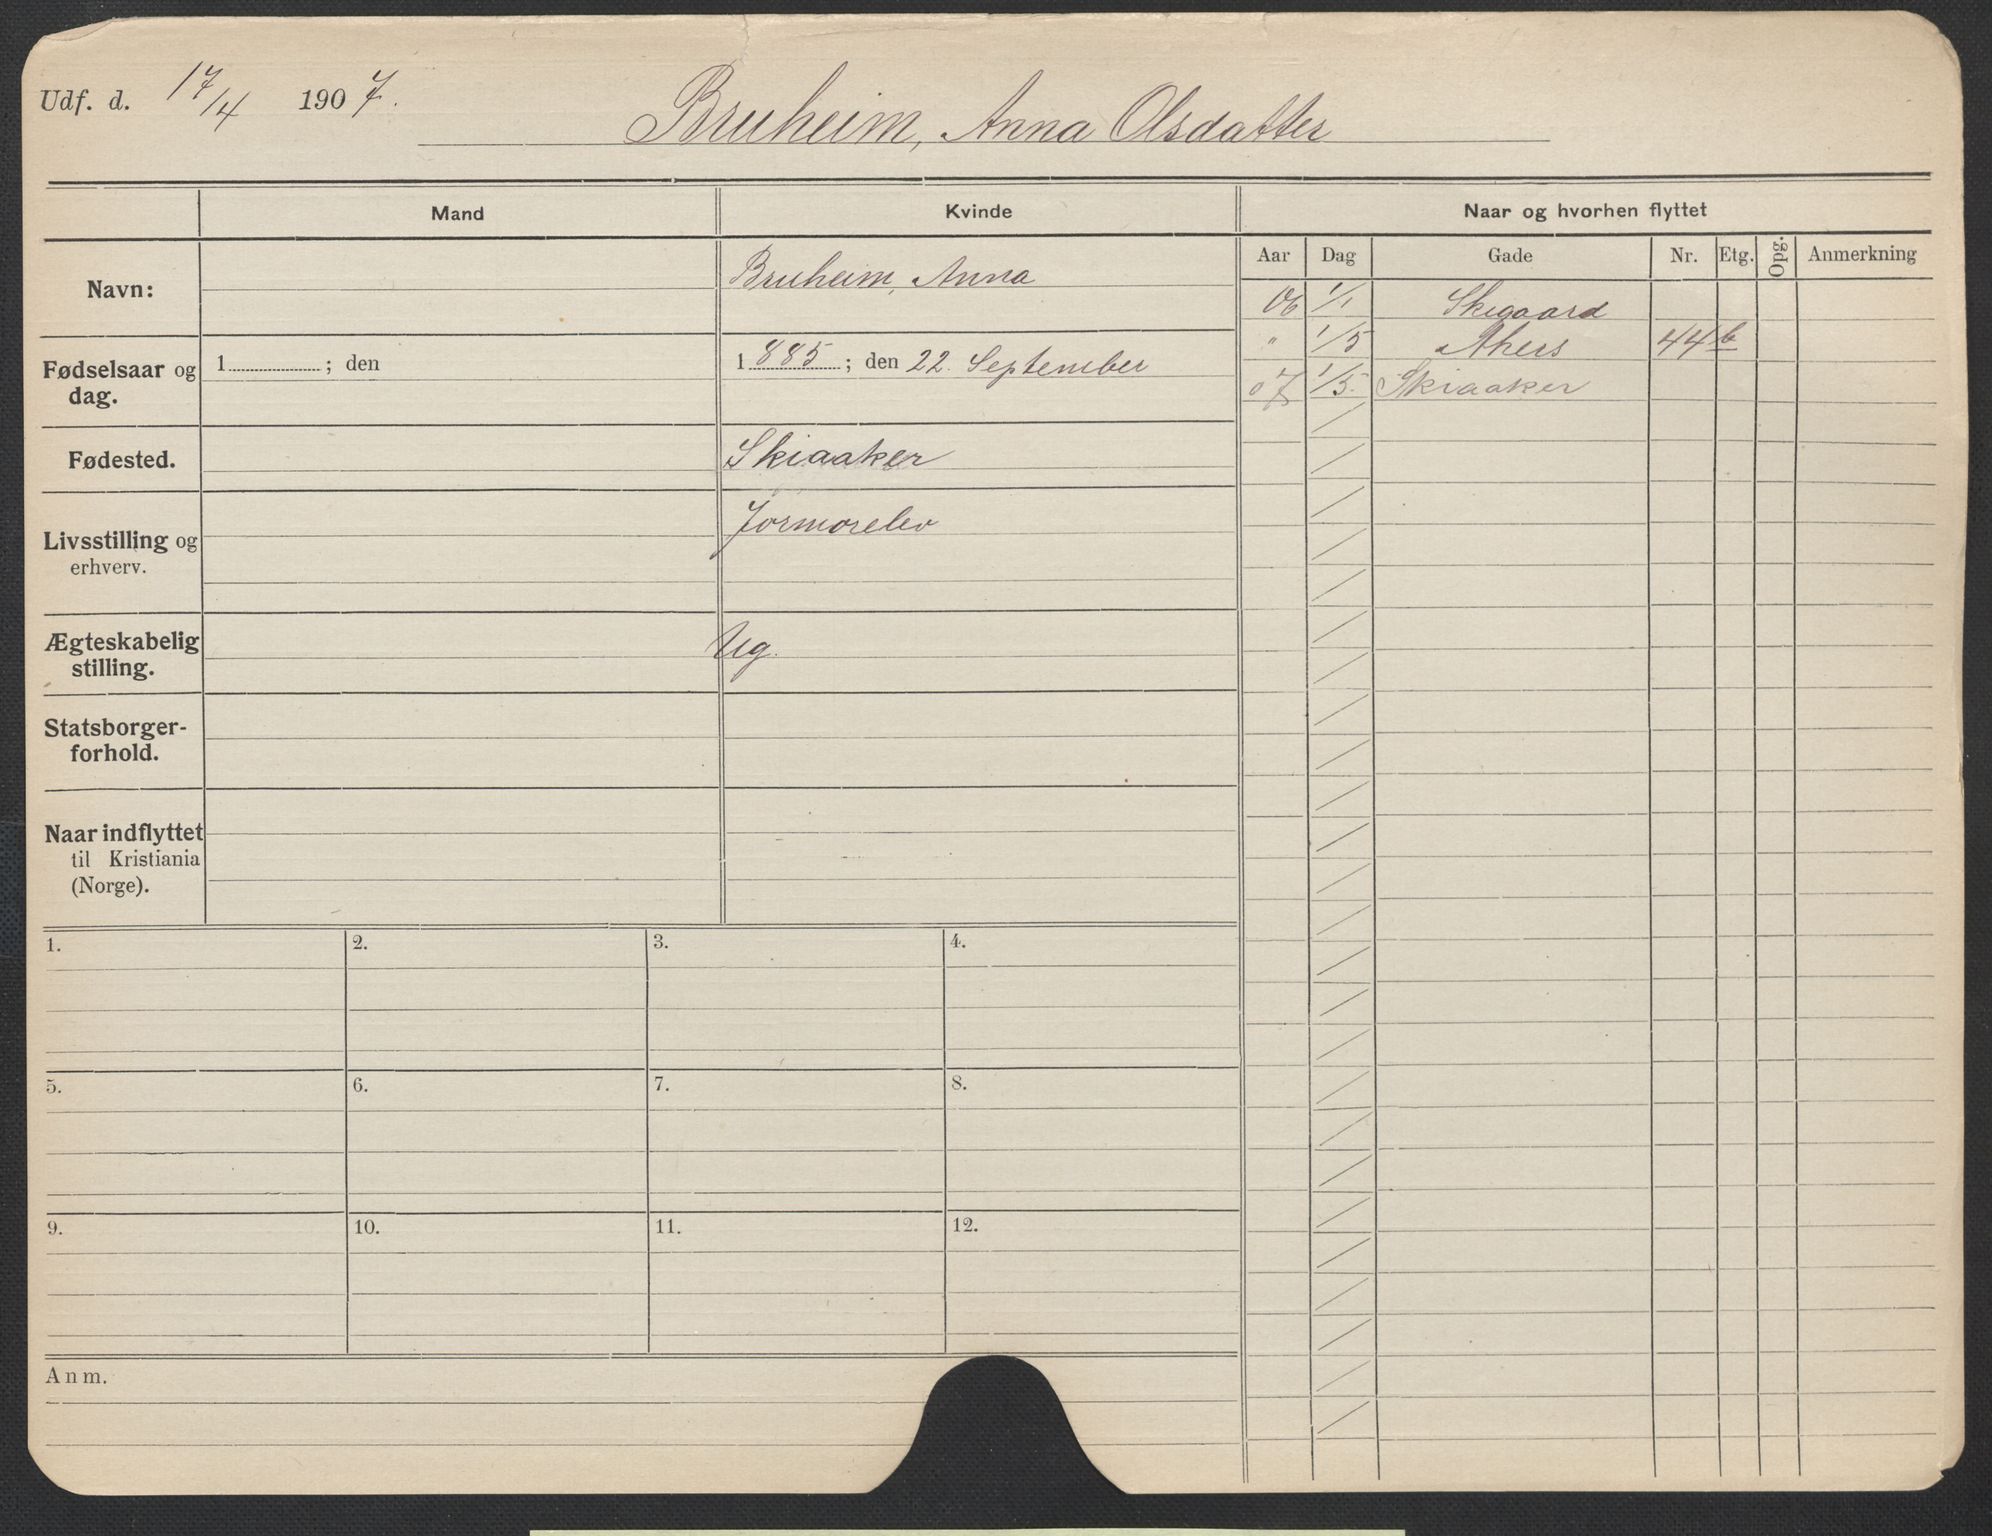 Udf. d. 17/4 1907.
Bruheim, Anna Olsdatter
Mand Kvinde Naar og hvorhen flyttet
Aar Dag Gade Nr. Etg. Opg. Anmerkning
Navn: Bruheim, Anna
06 1/1 Skigaard
" 1/5 Akers 44 b
07 1/5 Skiaaker
Fødselsaar og dag. 1 ; den 1885; den 22. September
Fødested. Skiaaker
Livsstilling og erhverv. Jormorelev
Ægteskabelig stilling. Ug.
Statsborger-
forhold.
Naar indflyttet
til Kristiania
(Norge).
1. 2. 3. 4.
5. 6. 7. 8.
9. 10. 11. 12.
Anm.